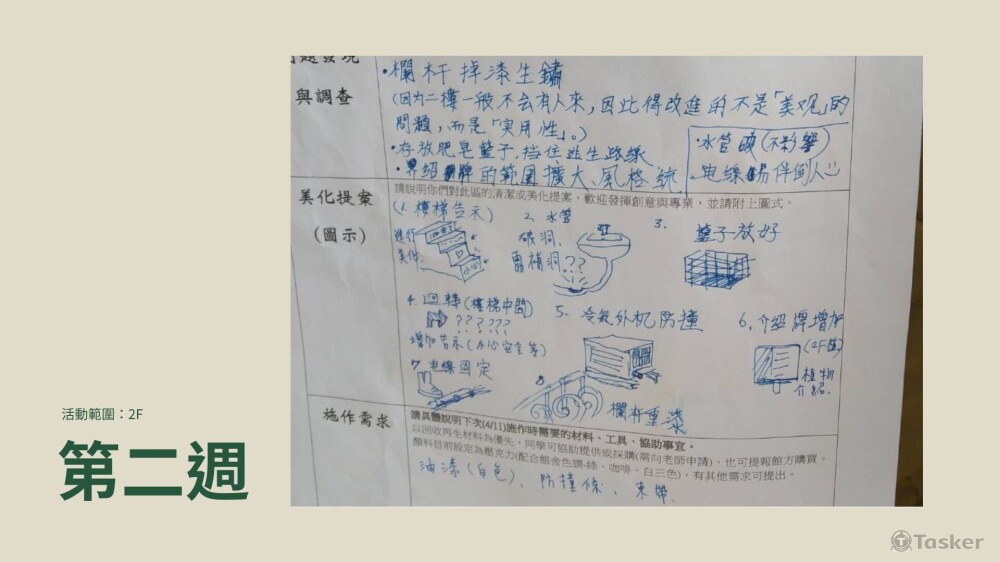 問題發現
與調查
•欄杆掉漆生鏽
(因为二樓一般不会有人來,因此得改進的不是「美观」的
問題,而是「实用性」。)
•存放肥皂籃子,挡住逃生路線
•界紹牌的範圍擴大、風格統
•水管破(不影響)
•电線易伴倒人
美化提案
(圖示)
請說明你們對此區的清潔或美化提案,歡迎發揮創意與專業,並請附上圖式。
(1.樓梯告示)
進行
美化.
小心
2.水管
破洞、
需補洞??
3.
籃子放好
4.迴轉(樓梯中間)
??????
增加告示(小心安全等)
5.冷氣外机防撞
6.介紹牌增加
(2F植)
植物
介紹.
7.电線固定
8
欄杆重漆
施作需求
請具體說明下次(4/11)施作時需要的材料、工具、協助事宜。
以回收再生材料為優先,同學可協助提供或採購(需向老師申請)、也可提報館方購買。
顏料目前設定為壓克力(配合館舍色調-綠、咖啡、白三色),有其他需求可提出。
油漆(白色)、防撞條、束帶.
活動範圍:2F
第二週
Tasker